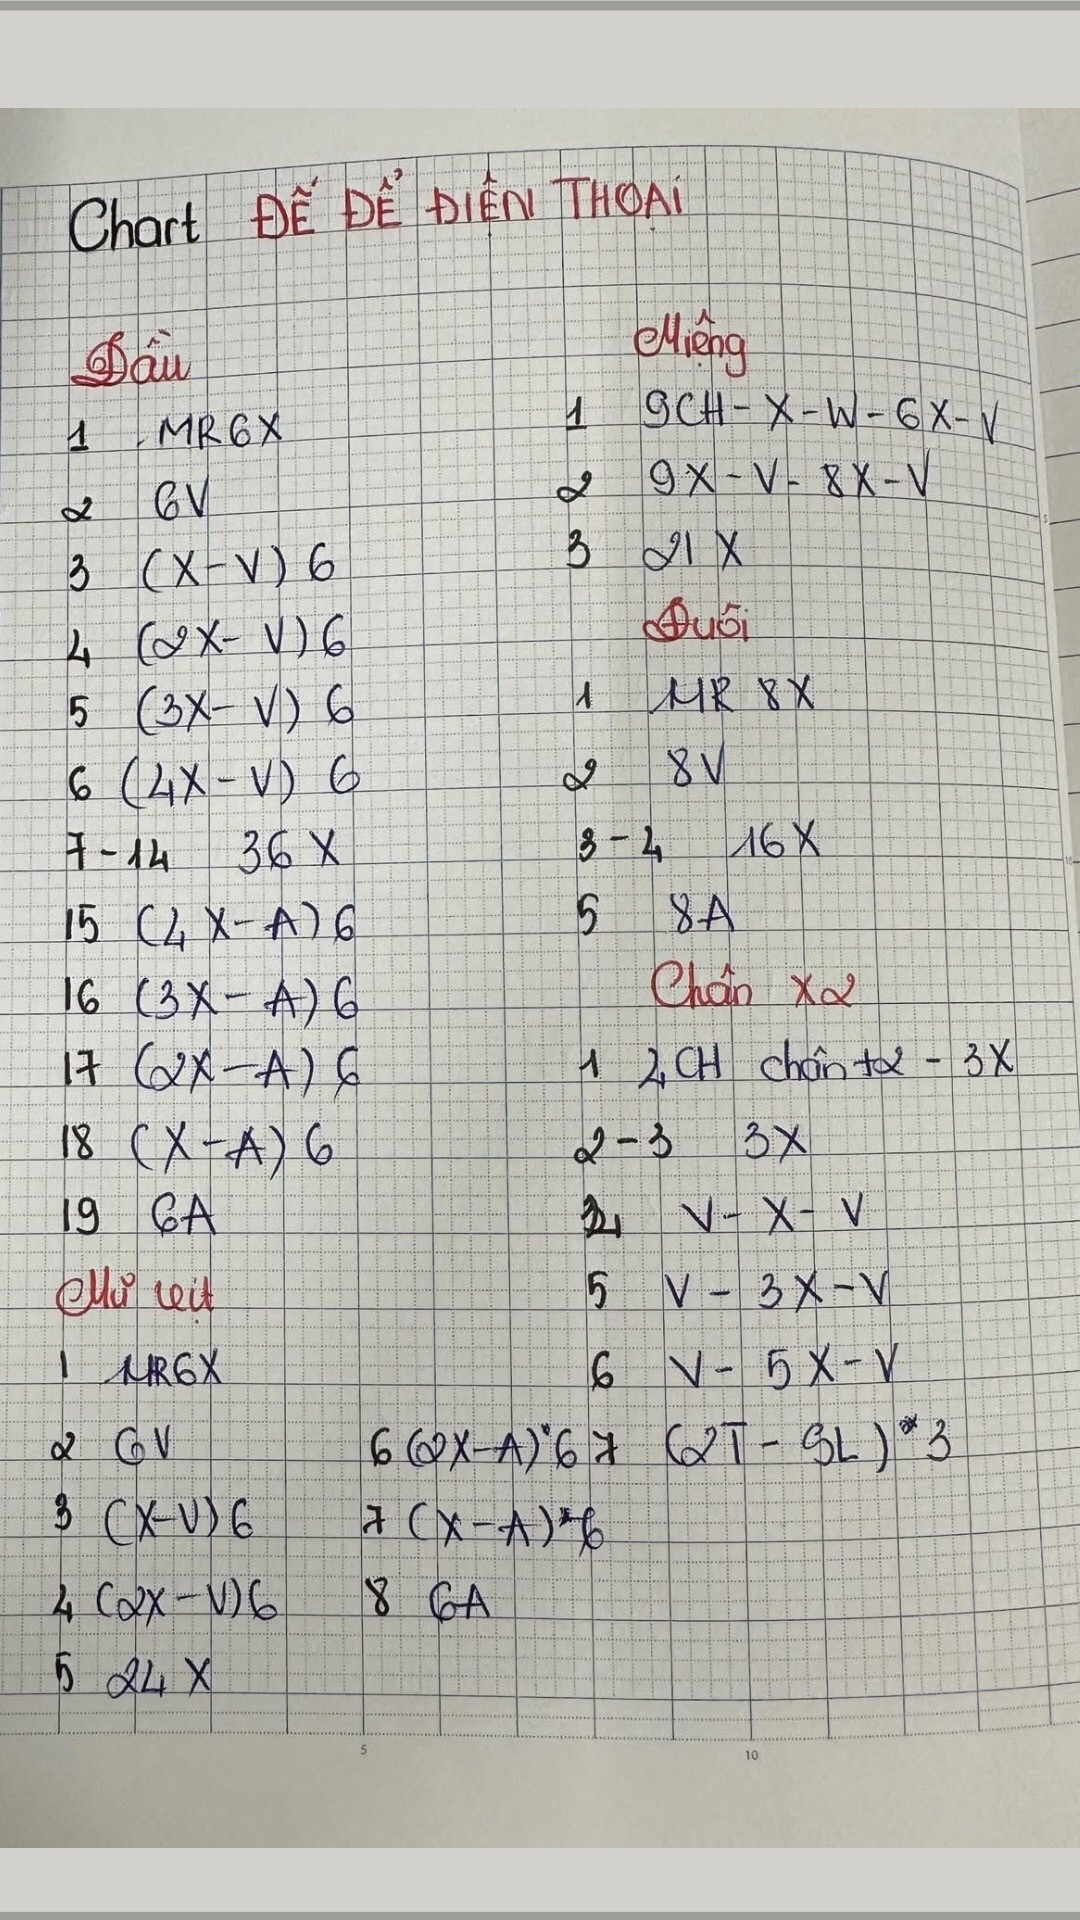 Chart ĐẾ ĐỂ ĐIỆN THOẠI
Đầu
1 MR6X
2 6V
3 (X-V) 6
4 (2X-V) 6
5 (3X-V) 6
6 (4X-V) 6
7-14 36 X
15 (4X-A) 6
16 (3X-A) 6
17 (2X-A) 6
18 (X-A) 6
19 6A
Mũ vịt
1 MR6X
2 6V
3 (X-V) 6
4 (2X-V) 6
5 24 X
6 (2X-A)*6
7 (X-A)*6
8 6A
Miệng
1 9CH-X-W-6X-V
2 9X-V-8X-V
3 21 X
Đuôi
1 MR 8X
2 8V
3-4 16X
5 8A
Chân x2
1 4CH chân+2 - 3X
2-3 3X
4 V-X-V
5 V-3X-V
6 V-5X-V
7 (2T-SL)*3
5
10